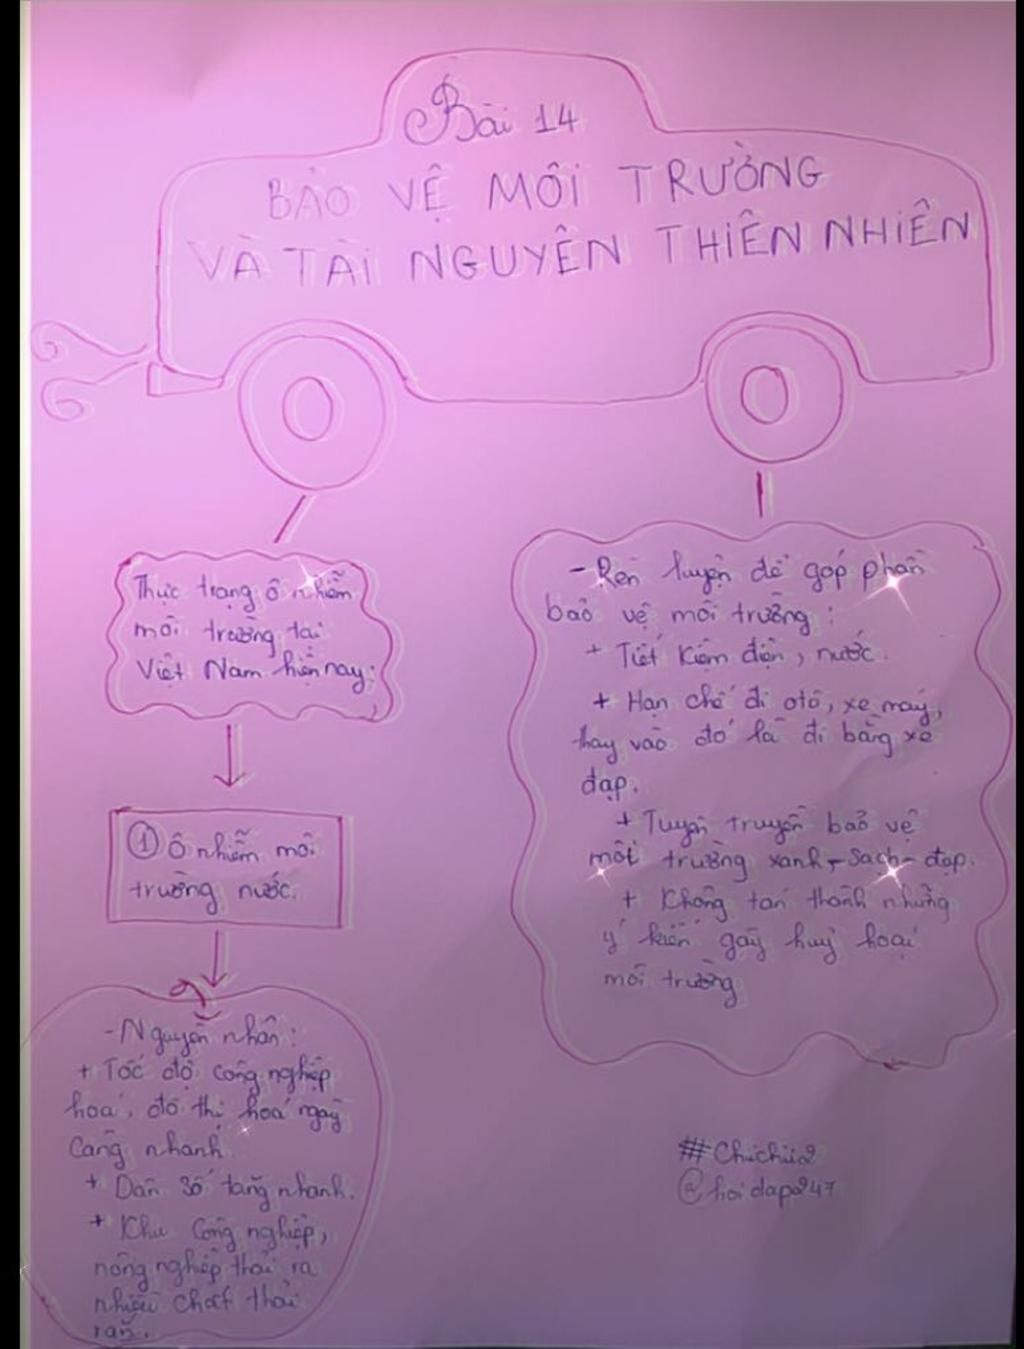 Bài 14
BẢO VỆ MÔI TRƯỜNG
VÀ TÀI NGUYÊN THIÊN NHIÊN
Thực trạng ô nhiễm
môi trường tại
Việt Nam hiện nay:
① Ô nhiễm môi
trường nước.
- Nguyên nhân:
+ Tốc độ công nghiệp
hoá, đô thị hoá ngày
càng nhanh
+ Dân số tăng nhanh.
+ Khu công nghiệp,
nông nghiệp thải ra
nhiều chất thải
rắn.
- Rèn luyện để góp phần
bảo vệ môi trường:
+ Tiết kiệm điện, nước.
+ Hạn chế đi ôtô, xe máy,
thay vào đó là đi bằng xe
đạp.
+ Tuyên truyền bảo vệ
môi trường xanh - sạch - đẹp.
+ Không tán thành những
ý kiến gây huỷ hoại
môi trường
#Chichii2
@hoidap247